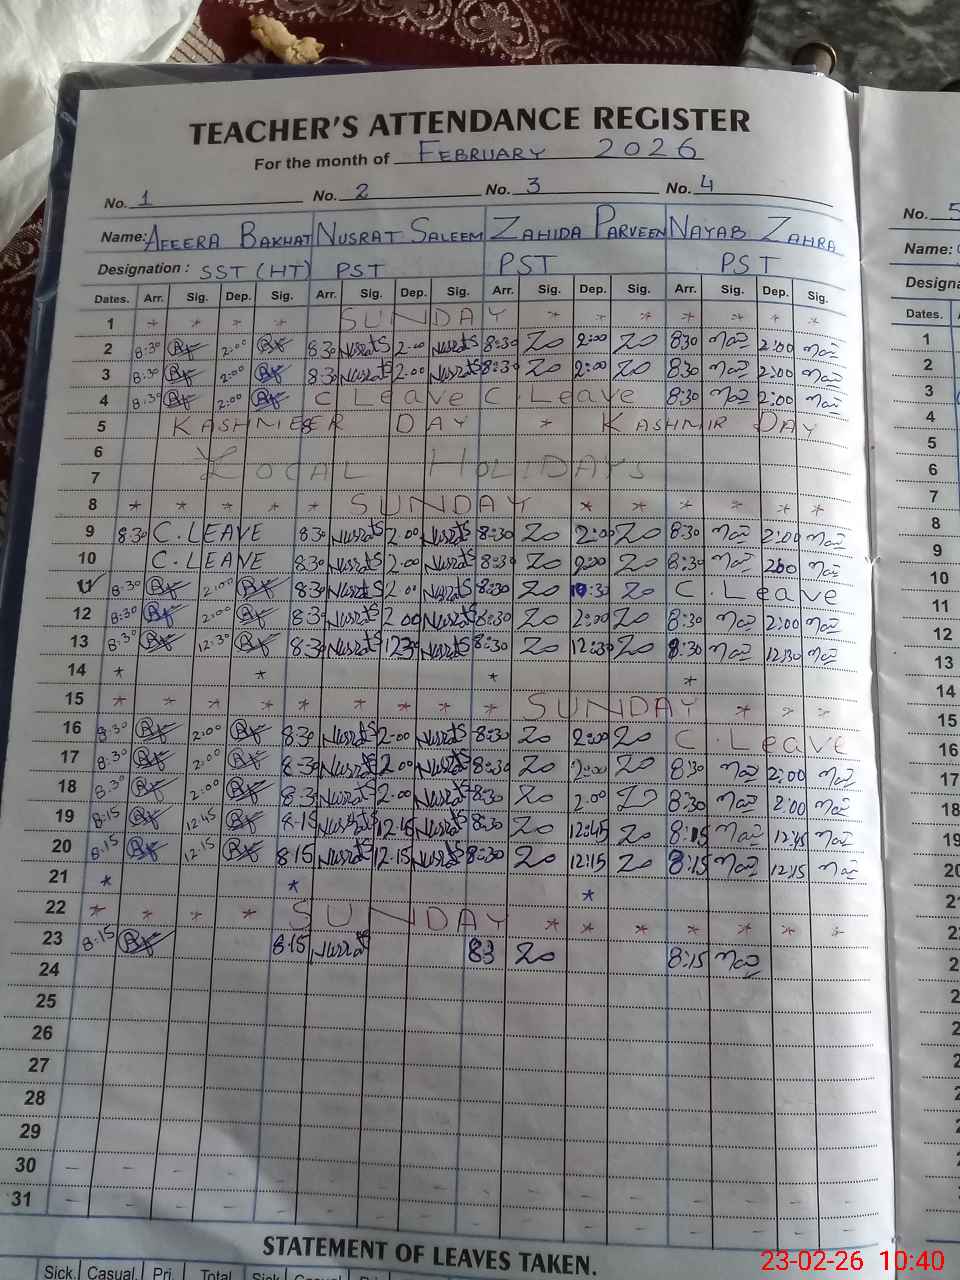 TEACHER'S ATTENDANCE REGISTER
For the month of FEBRUARY 2026
No. 1 No. 2 No. 3 No. 4
Name: AFEERA BAKHAT NUSRAT SALEEM ZAHIDA PARVEEN NAYAB ZAHRA
Designation: SST (HT) PST PST PST
Dates. Arr. Sig. Dep. Sig. Arr. Sig. Dep. Sig. Arr. Sig. Dep. Sig. Arr. Sig. Dep. Sig.
1 * * * * SUNDAY * * * * * * *
2 8:30 2:00 8:30 Nusrat 2:00 Nusrat 8:30 Zo 2:00 Zo 8:30 2:00
3 8:30 2:00 8:30 Nusrat 2:00 Nusrat 8:30 Zo 2:00 Zo 8:30 2:00
4 8:30 2:00 C Leave C. Leave 8:30 2:00
5 KASHMEER DAY * KASHMIR DAY
6 LOCAL HOLIDAYS
7
8 * * * * * SUNDAY * * * * * *
9 8:30 C. LEAVE 8:30 Nusrat 2:00 Nusrat 8:30 Zo 2:00 Zo 8:30 2:00
10 C. LEAVE 8:30 Nusrat 2:00 Nusrat 8:30 Zo 2:00 Zo 8:30 200
11 8:30 2:00 8:30 Nusrat 2:00 Nusrat 8:30 Zo 10:30 Zo C. Leave
12 8:30 2:00 8:30 Nusrat 2 00 Nusrat 8:30 Zo 2:00 Zo 8:30 2:00
13 8:30 12:30 8:30 Nusrat 1230 Nusrat 8:30 Zo 12:30 Zo 8:30 12:30
14 * * * *
15 * * * * * * * * SUNDAY * * *
16 8:30 2:00 8:30 Nusrat 2:00 Nusrat 8:30 Zo 2:00 Zo C. Leave
17 8:30 2:00 8:30 Nusrat 2:00 Nusrat 8:30 Zo 2:00 Zo 8:30 2:00
18 8:30 2:00 8:3 Nusrat 2:00 Nusrat 8:30 Zo 2:00 Zo 8:30 2:00
19 8:15 12:45 8:15 Nusrat Nusrat 8:30 Zo 12:45 Zo 8:15 12:45
20 8:15 12:15 8:15 Nusrat 12:15 Nusrat 8:30 Zo 12:15 Zo 8:15 12:15
21 * * *
22 * * * * SUNDAY * * * * * *
23 8:15 8:15 Nusrat 83 Zo 8:15
24
25
26
27
28
29
30 - - - - - - - - - - - - - - - -
31 - - - - - - - - - - - - - - - -
STATEMENT OF LEAVES TAKEN.
Sick. Casual. Pri. Total Sick.
No. 5
Name:
Dates.
1
2
3
4
5
6
7
8
9
10
11
12
13
14
15
16
17
18
19
20
23-02-26 10:40